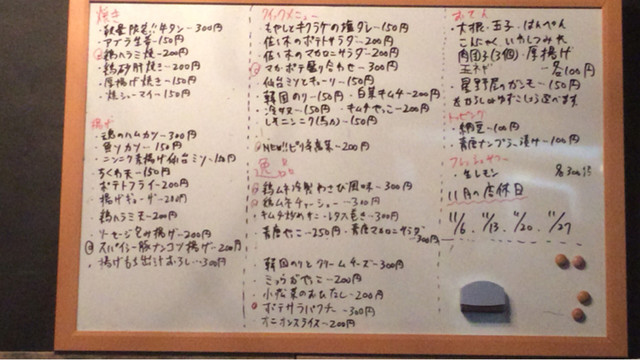 焼き
・数量限定!!牛タン-300円
・アブラ生姜-150円
鶏ハラミ焼-200円
・鶏砂肝焼き-200円
・厚揚げ焼き-150円
・焼シューマイ-150円
揚げ
・魂のハムカツ-300円
・魚リカツ-150円
・ニンニク素揚げ仙台ミソ-150円
ちくわ天-150円
ポテトフライ-200円
揚げギョーザ-200円
鶏ハラミ天-200円
ソーセージ包み揚げ-200円
スパイシー豚ナンコツ揚げ-200円
・揚げもち出汁おろし-300円
クイックメニュー
もやしとキクラゲの塩ダレ-150円
佐々木のポテトサラダ-200円
佐々木のマカロニサラダ-200円
マカ・ポテ盛り合わせ-300円
仙台ミソとキューリ-150円
韓国のり-150円・白菜キムチ-200円
・漬サヌ-150円・キムチやっこ-200円
・レモニンニク(馬力)-150円
NEW!!ピリ辛高菜-200円
逸品
鶏ムネ冷製わさび風味-300円
鶏ムネチャーシュー-300円
・キムチ炒めオニ・レタス巻き-300円
青唐やっこ-250円・青唐マカロニサラダ-300円
韓国のりとクリームチーズ-300円
・ミョウガやっこ-200円
・小松菜のおひたし-200円
・ポテサラパクチー-300円
・オニオンスライス-200円
おでん
・大根・玉子・はんぺん
こんにゃく・いわしつみれ
肉団子(3個)・厚揚げ
玉ネギ-各100円
・星野屋のガンモ-150円
トッピング
・納豆-100円
・青唐ナンプラー漬け-100円
フレッシュサワー
・生レモン 各300円
11月の店休日
11/6、11/13、11/20、11/27